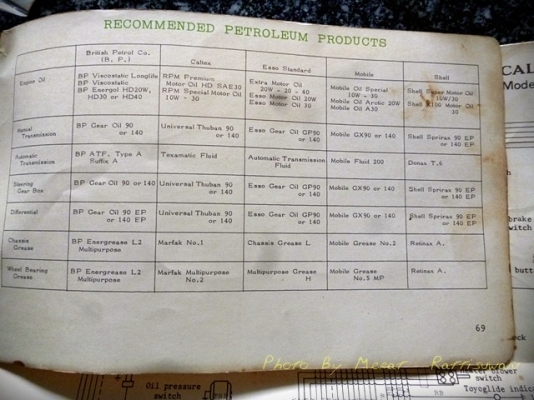 RECOMMENDED PETROLEUM PRODUCTS
British Petrol Co. (B. P.)
Caltex
Esso Standard
Mobile
Shell
Engine Oil
BP Viscostatic Longlife
BP Viscostatic
BP Energol HD20W,
HD30 or HD40
RPM Premium
Motor Oil HD SAE30
RPM Special Motor Oil
10W - 30
Extra Motor Oil
20W - 20 - 60
Esso Motor Oil 20W
Esso Motor Oil 30
Mobile Oil Special
10W - 30
Mobile Oil Arctic 20W
Mobile Oil A30
Shell Super Motor Oil
10W/30
Shell X100 Motor Oil
30
Manual
Transmission
BP Gear Oil 90
or 140
Universal Thuban 90
or 140
Esso Gear Oil GP90
or 140
Mobile GX90 or 140
Shell Sprirax 90 EP
or 140 EP
Automatic
Transmission
BP ATF, Type A
Suffix A
Texamatic Fluid
Automatic Transmission
Fluid
Mobile Fluid 200
Donax T.6
Steering
Gear Box
BP Gear Oil 90 or 140
Universal Thuban 90
or 140
Esso Gear Oil GP90
or 140
Mobile GX90
or 140
Shell Sprirax 90 EP
or 140 EP
Differential
BP Gear Oil 90 EP
or 140 EP
Universal Thuban 90
or 140
Esso Gear Oil GP90
or 140
Mobile GX90 or 140
Shell Sprirax 90 EP
or 140 EP
Chassis
Grease
BP Energrease L.2
Multipurpose
Marfak No.1
Chassis Grease L
Mobile Grease No.2
Retinax A.
Wheel Bearing
Grease
BP Energrease L.2
Multipurpose
Marfak Multipurpose
No.2
Multipurpose Grease
H
Mobile Grease
No.5 MP
Retinax A.
69
CAL
Mode
brake
switch
butt
Photo By Mozar
Oil pressure
switch
blower
switch
Toyoglide indicator